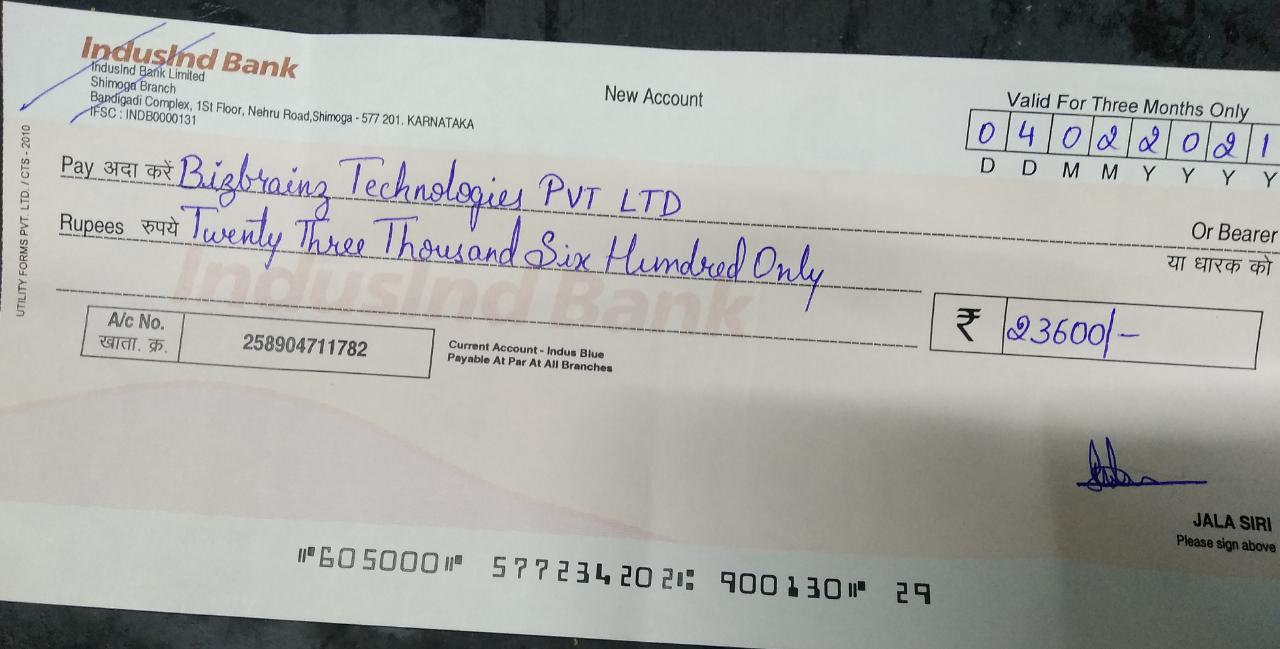 IndusInd Bank
IndusInd Bank Limited
Shimoga Branch
Bandigadi Complex, 1St Floor, Nehru Road,Shimoga - 577 201. KARNATAKA
IFSC : INDB0000131
New Account
Valid For Three Months Only
0 4 0 2 2 0 2 1
D D M M Y Y Y Y
Pay अदा करें Bizbrainz Technologies PVT LTD
Or Bearer
या धारक को
Rupees रुपये Twenty Three Thousand Six Hundred Only
₹ 23600/-
A/c No.
खाता. क्र.
258904711782
Current Account - Indus Blue
Payable At Par At All Branches
IndusInd Bank
UTILITY FORMS PVT. LTD. / CTS - 2010
JALA SIRI
Please sign above
⑈605000⑈ 577234202⑆ 900130⑈ 29